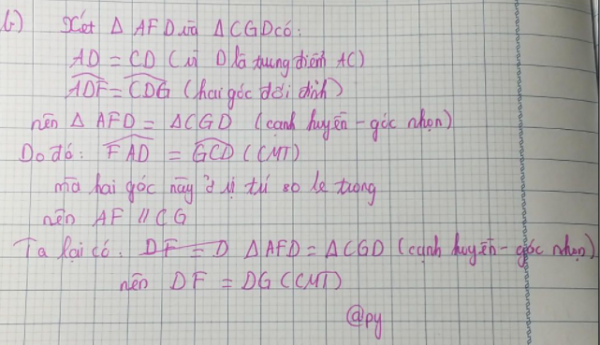 b) Xét Δ AFD và Δ CGD có:
AD = CD (vì D là trung điểm AC)
ADF = CDG (hai góc đối đỉnh)
nên Δ AFD = Δ CGD (cạnh huyền - góc nhọn)
Do đó: FAD = GCD (CMT)
mà hai góc này ở vị trí so le trong
nên AF // CG
Ta lại có: DF = D Δ AFD = Δ CGD (cạnh huyền - góc nhọn)
nên DF = DG (CMT)
@py